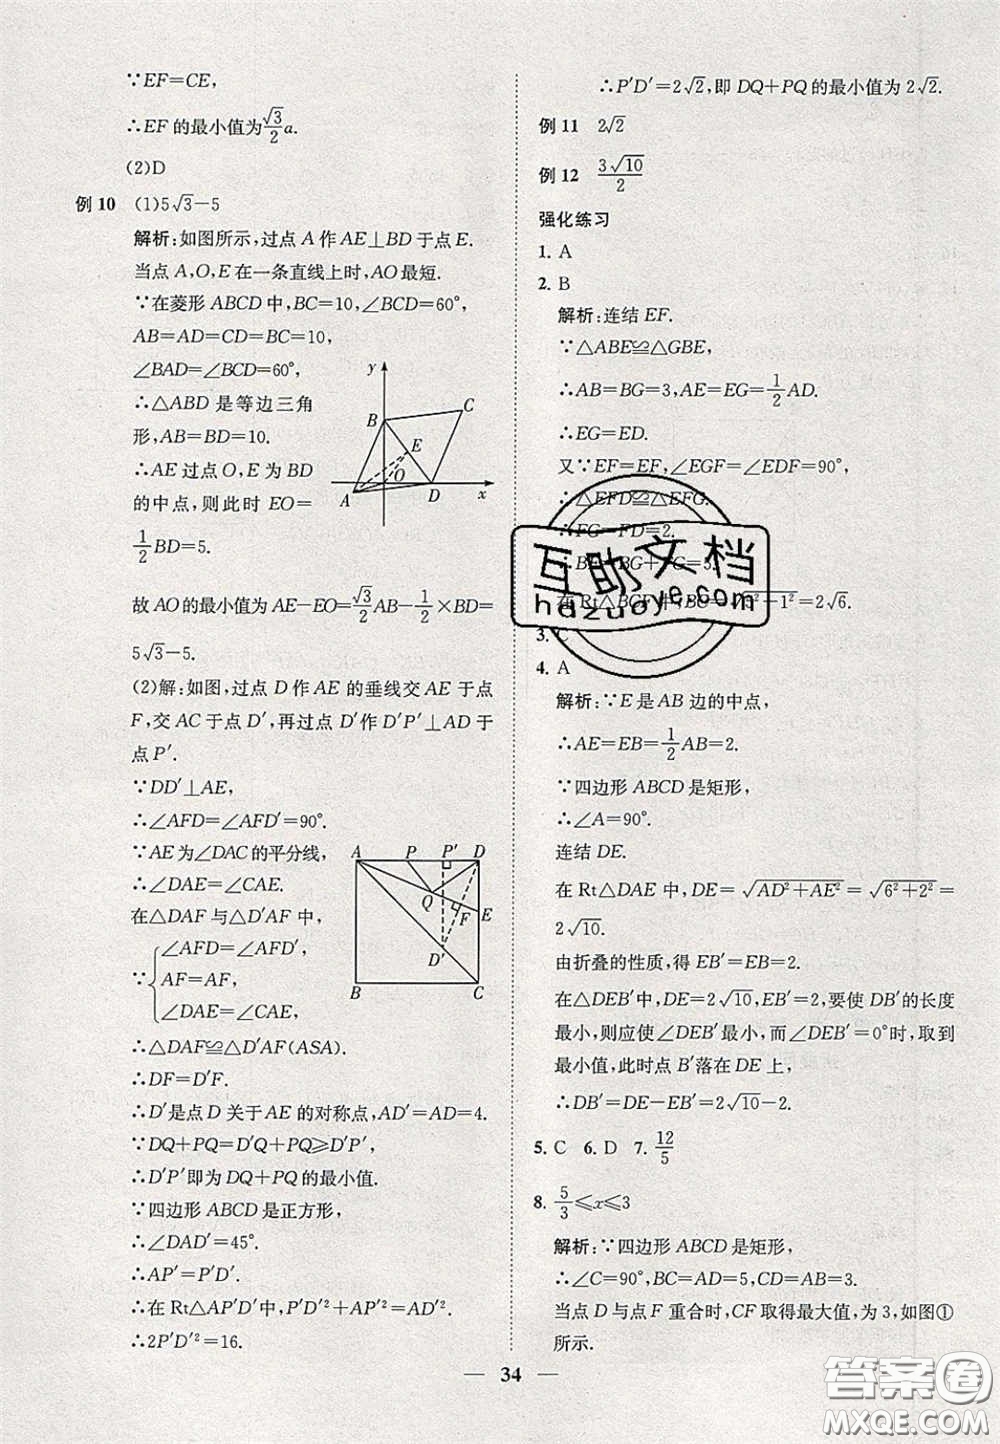 ∵EF=CE,
∴EF的最小值为√3/2 a.
(2)D
例10 (1)5√3-5
解析:如图所示,过点A作AE⊥BD于点E.
当点A,O,E在一条直线上时,AO最短.
∵在菱形ABCD中,BC=10,∠BCD=60°,
AB=AD=CD=BC=10,
∠BAD=∠BCD=60°,
∴△ABD是等边三角
形,AB=BD=10.
∴AE过点O,E为BD
的中点,则此时EO=
1/2 BD=5.
y
B
C
E
O
A
D
x
故AO的最小值为AE-EO=√3/2 AB-1/2×BD=
5√3-5.
(2)解:如图,过点D作AE的垂线交AE于点
F,交AC于点D′,再过点D′作D′P′⊥AD于
点P′.
∵DD′⊥AE,
∴∠AFD=∠AFD′=90°.
∵AE为∠DAC的平分线,
∴∠DAE=∠CAE.
在△DAF与△D′AF中,
∵{∠AFD=∠AFD′,
AF=AF,
∠DAE=∠CAE,
A P P′ D
Q F E
D′
B C
∴△DAF≌△D′AF(ASA).
∴DF=D′F.
∴D′是点D关于AE的对称点,AD′=AD=4.
∵DQ+PQ=D′Q+PQ≥D′P′,
∴D′P′即为DQ+PQ的最小值.
∵四边形ABCD是正方形,
∴∠DAD′=45°.
∴AP′=P′D′.
∴在Rt△AP′D′中,P′D′²+AP′²=AD′².
∴2P′D′²=16.
∴P′D′=2√2,即DQ+PQ的最小值为2√2.
例11 2√2
例12 3√10/2
强化练习
1. A
2. B
解析:连结EF.
∵△ABE≌△GBE,
∴AB=BG=3,AE=EG=1/2 AD.
∴EG=ED.
又∵EF=EF,∠EGF=∠EDF=90°,
∴△EFD≌△EFG.
∴FG=FD=2.
互助文档
hdzuoye.com
=2√6.
3. C
4. A
解析:∵E是AB边的中点,
∴AE=EB=1/2 AB=2.
∵四边形ABCD是矩形,
∴∠A=90°.
连结DE.
在Rt△DAE中,DE=√(AD²+AE²)=√(6²+2²)=
2√10.
由折叠的性质,得EB′=EB=2.
在△DEB′中,DE=2√10,EB′=2,要使DB′的长度
最小,则应使∠DEB′最小,而∠DEB′=0°时,取到
最小值,此时点B′落在DE上,
∴DB′=DE-EB′=2√10-2.
5. C 6. D 7. 12/5
8. 5/3≤x≤3
解析:∵四边形ABCD是矩形,
∴∠C=90°,BC=AD=5,CD=AB=3.
当点D与点F重合时,CF取得最大值,为3,如图①
所示.
34
答案圈
MXQE.COM